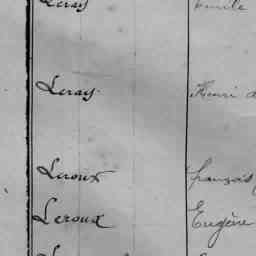 Leray Emile
Leray Henri
Leroux François
Leroux Eugène